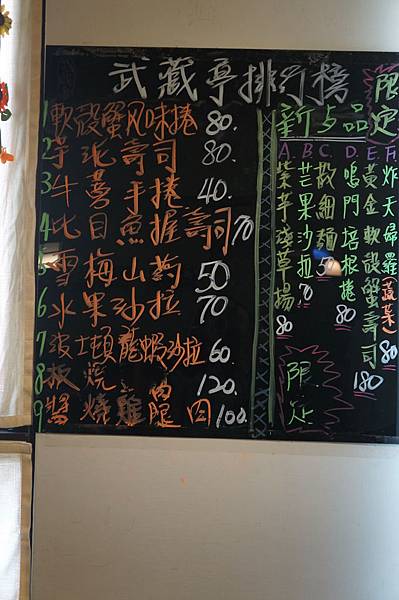 武藏亭排行榜
1 軟殼蟹風味捲 80.
2 芋泥壽司 80.
3 牛蒡手捲 40.
4 比目魚握壽司 70
5 雪梅山药 50
6 水果沙拉 70
7 波士頓龍蝦沙拉 60.
8 板燒 肉 120.
9 醬燒雞腿肉 100.
限定
新品
A. 紫芋 揚 80
B. 芒果沙拉 70
C. 散細麵 50
D. 鳴門培根捲 80
E. 黃金軟殼蟹壽司 180
F. 炸天婦羅(蔬菜) 80
限定